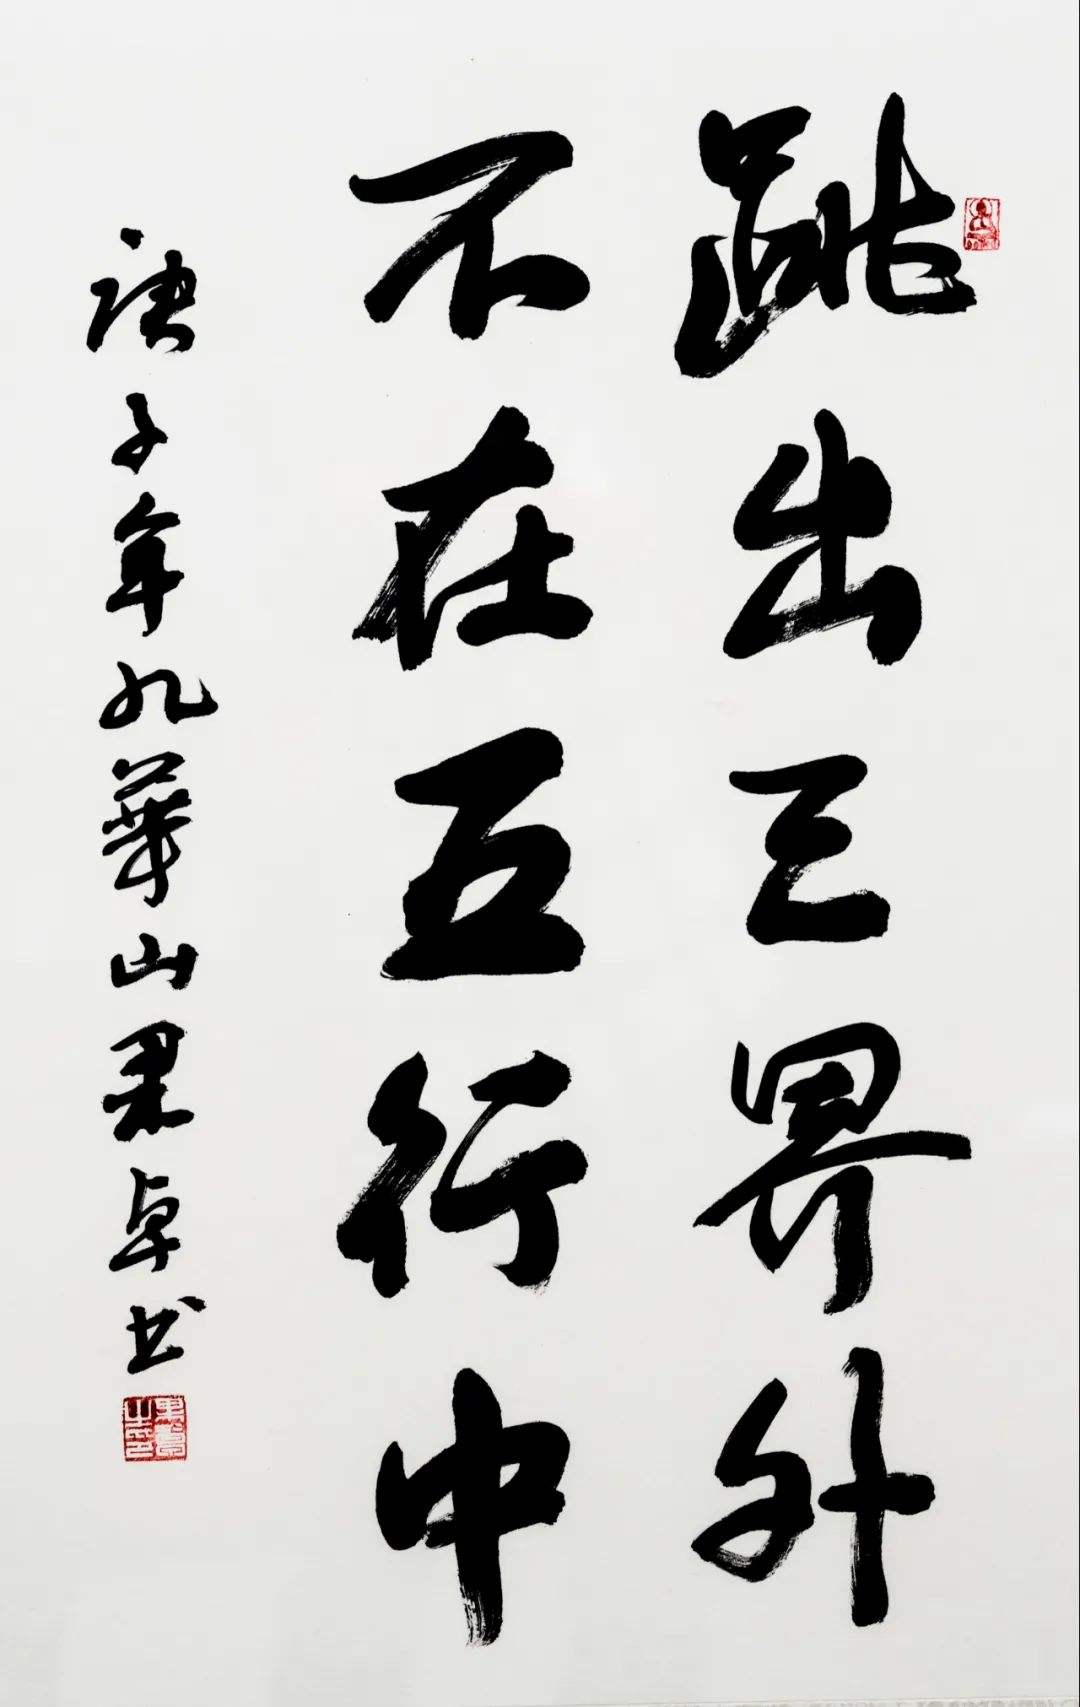 跳出三界外
不在五行中
庚子年九華山果卓书